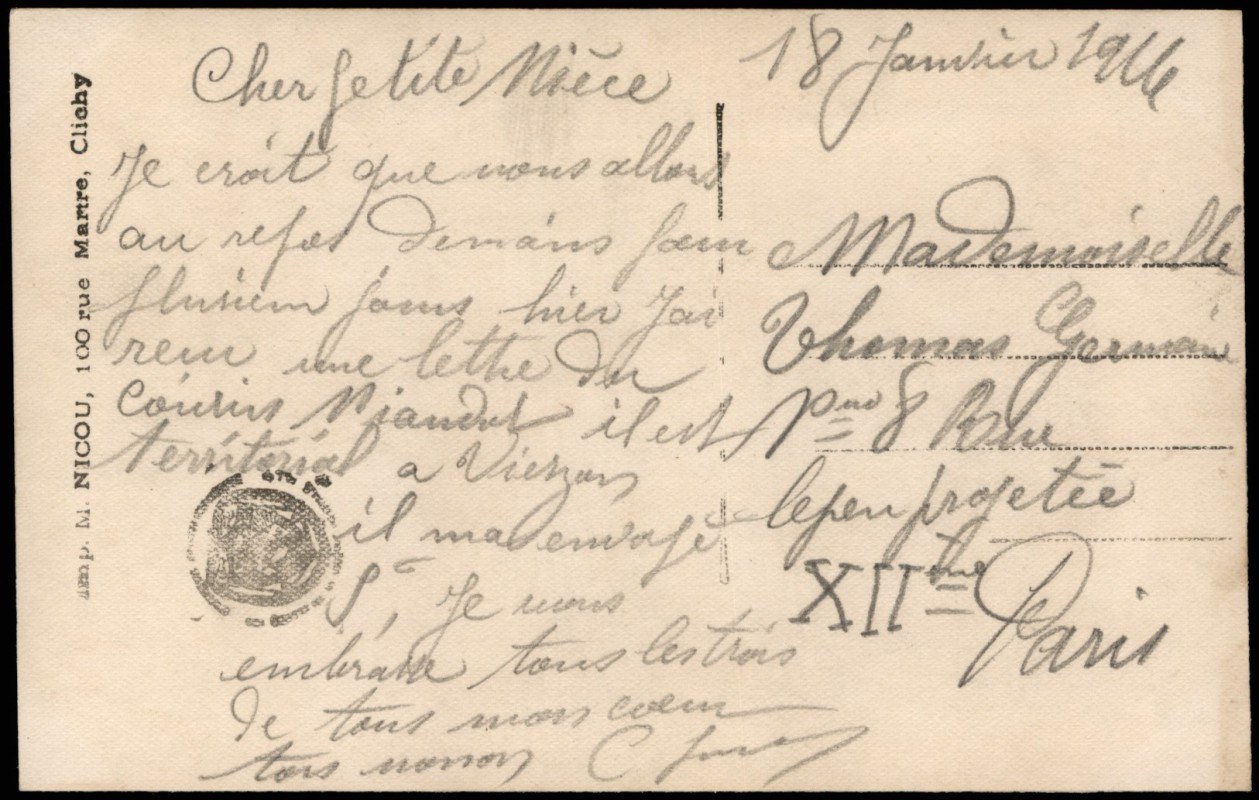 Imp. M. NICOU, 100 rue Martre, Clichy
Cher petite Nièce
Je croit que nous allons
au repos demains pour
plusieur jours hier J'ai
reçu une lettre du
cousins il est
territorial a Vierzon
il ma envoyé
5 Je vous
embrasse tous les trois
de tous mon coeur
tons nonon
18 Janvier 1916
Mademoiselle
Thomas Germaine
8 Rue
lepeu projetée
XIIème Paris